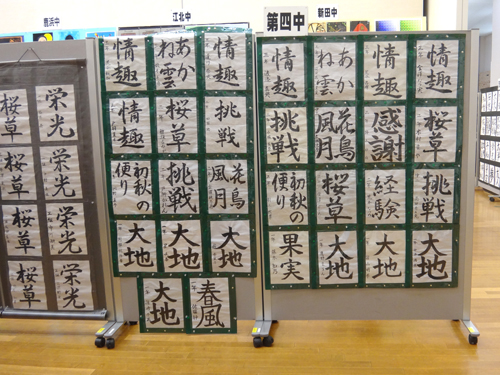 豊浜中
江北中
第四中
新田中
桜草 栄光
桜草 栄光
桜草 栄光
桜草 栄光
情趣 あかね雲 情趣
情趣 桜草 挑戦
初秋の便り 挑戦 花鳥風月
大地 大地 大地
大地 春風
情趣 あかね雲 情趣 情趣
挑戦 花鳥風月 感謝 桜草
初秋の便り 桜草 経験 挑戦
果実 大地 大地 大地